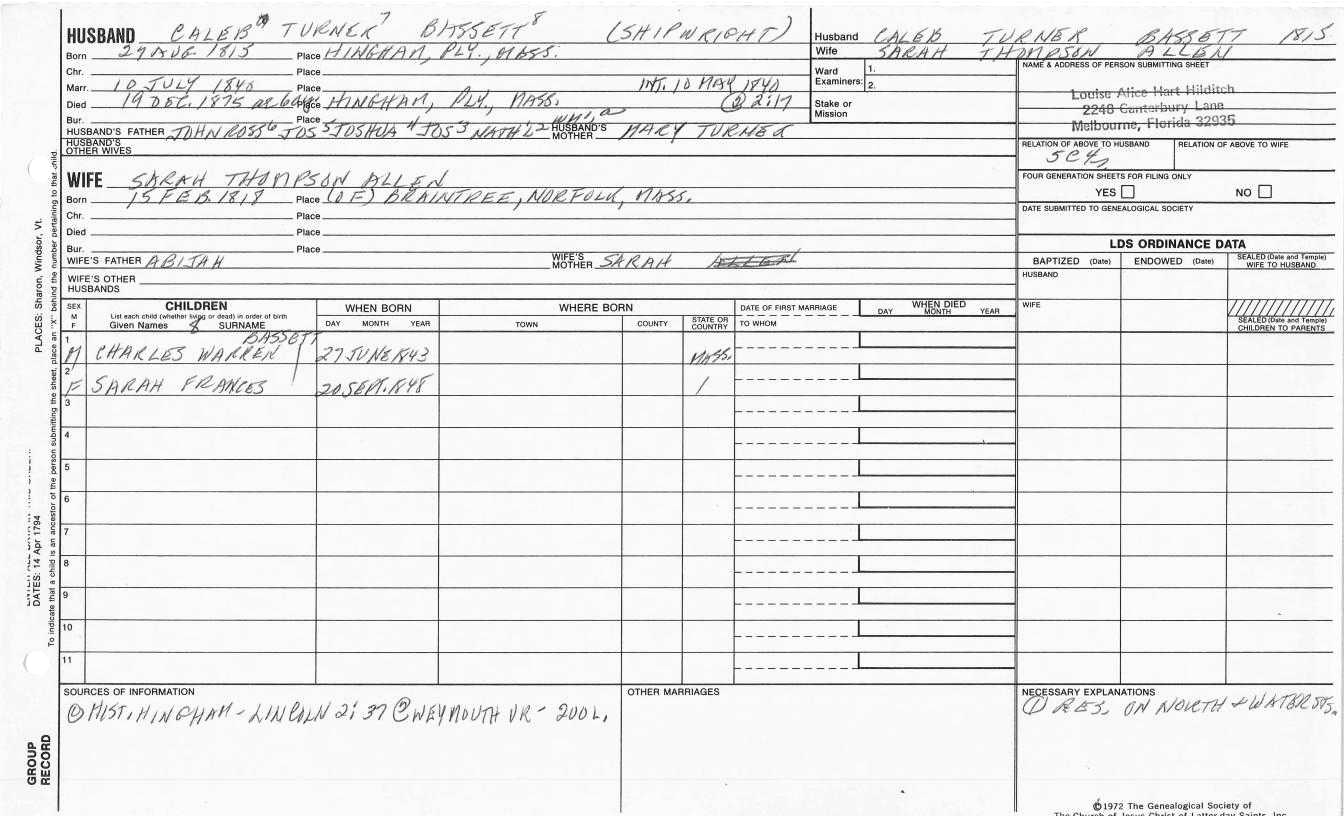 HUSBAND CALEB TURNER 7 BASSETT 8 (SHIPWRIGHT)
Born 29 AUG 1815 Place HINGHAM, PLY., MASS.
Chr. Place
Marr. 10 JULY 1840 Place INT. 10 MAY 1840
Died 19 DEC. 1875 Place HINGHAM, PLY, MASS. (2) 2:17
Bur. Place
HUSBAND'S FATHER JOHN ROSS 6 JOS 5 JOSHUA 4 JOS 3 NATH'L 2 HUSBAND'S MOTHER MARY TURNER
HUSBAND'S OTHER WIVES
WIFE SARAH THOMPSON ALLEN
Born 15 FEB. 1818 Place (OF) BRAINTREE, NORFOLK, MASS.
Chr. Place
Died Place
Bur. Place
WIFE'S FATHER ABIJAH WIFE'S MOTHER SARAH
WIFE'S OTHER HUSBANDS
Husband CALEB TURNER BASSETT 1815
Wife SARAH THOMPSON ALLEN
Ward Examiners: 1. 2.
Stake or Mission
NAME & ADDRESS OF PERSON SUBMITTING SHEET
Louise Alice Hart Hilditch
2248 Canterbury Lane
Melbourne, Florida 32935
RELATION OF ABOVE TO HUSBAND RELATION OF ABOVE TO WIFE
5C4
FOUR GENERATION SHEETS FOR FILING ONLY
YES NO
DATE SUBMITTED TO GENEALOGICAL SOCIETY
LDS ORDINANCE DATA
BAPTIZED (Date) ENDOWED (Date) SEALED (Date and Temple) WIFE TO HUSBAND
HUSBAND
WIFE
SEALED (Date and Temple) CHILDREN TO PARENTS
SEX M F
CHILDREN
List each child (whether living or dead) in order of birth
Given Names & SURNAME
WHEN BORN
DAY MONTH YEAR
WHERE BORN
TOWN COUNTY STATE OR COUNTRY
DATE OF FIRST MARRIAGE
TO WHOM
WHEN DIED
DAY MONTH YEAR
1 M CHARLES WARREN BASSETT 27 JUNE 1843 MASS.
2 F SARAH FRANCES 20 SEPT. 1848
3
4
5
6
7
8
9
10
11
SOURCES OF INFORMATION
(1) HIST. HINGHAM - LINCOLN 2: 37 (2) WEYMOUTH VR - 200 L.
OTHER MARRIAGES
NECESSARY EXPLANATIONS
(1) RES. ON NORTH & WATER STS.
©1972 The Genealogical Society of
The Church of Jesus Christ of Latter-day Saints, Inc.
PLACES: Sharon, Windsor, Vt.
DATES: 14 Apr 1794
To indicate that a child is an ancestor of the person submitting the sheet, place an "X" behind the number pertaining to that child.
GROUP RECORD